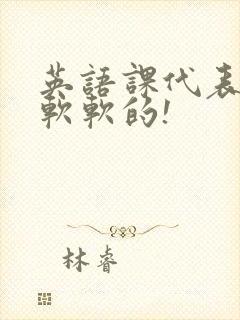 英語課代表
軟軟的!
林睿